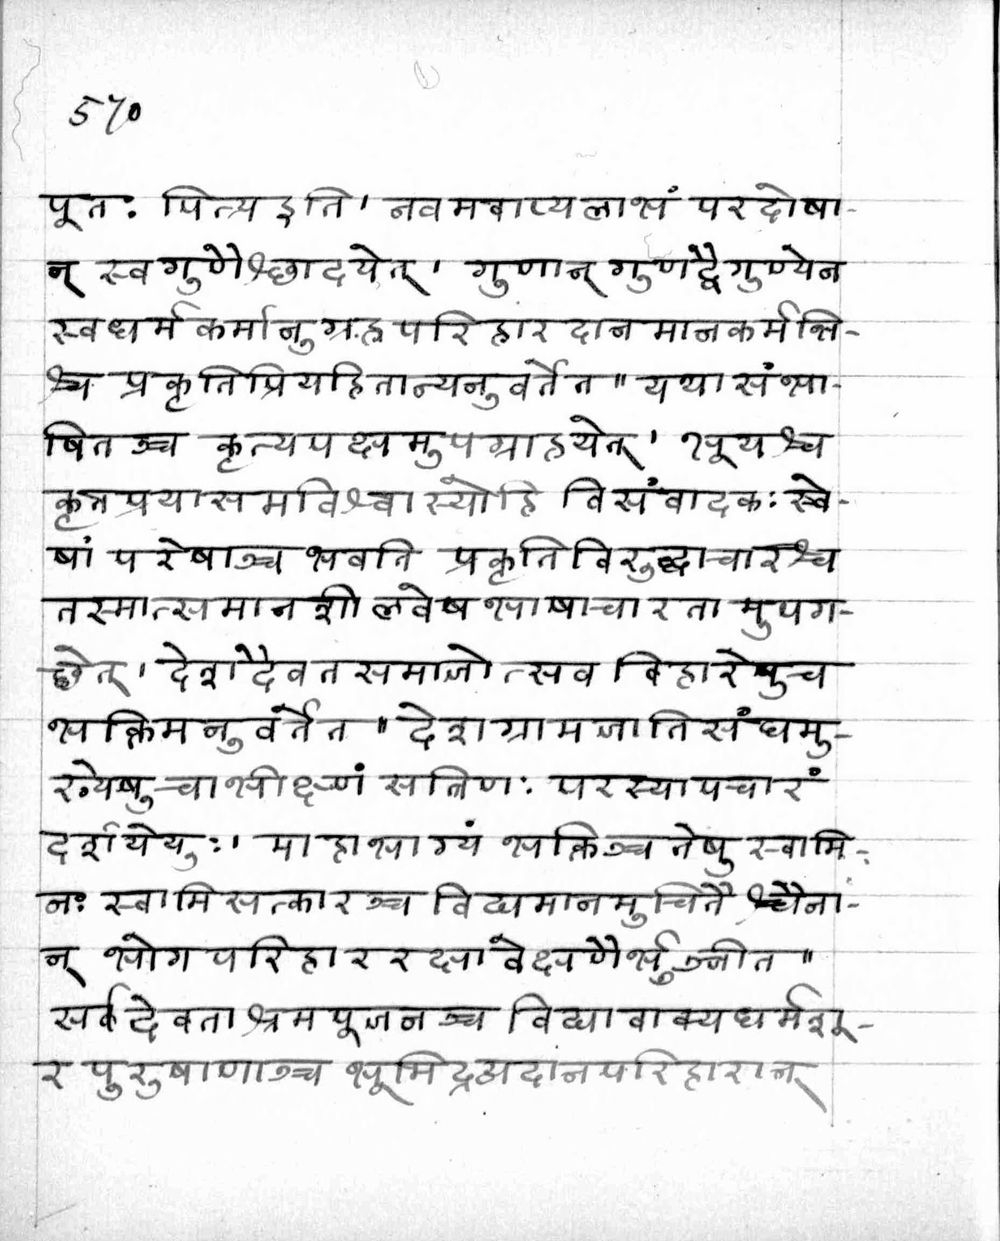 570
पूतः पित्र्य इति । नवमवाप्य लाभं परदोषा-
न् स्वगुणैश्छादयेत् । गुणान् गुणद्वैगुण्येन
स्वधर्मकर्मानुग्रहपरिहारदानमानकर्मभि-
श्च प्रकृतिप्रियहितान्यनुवर्तेत ॥ यथासंभा-
षितञ्च कृत्यपक्षमुपग्राहयेत् । भूयश्च
कृतप्रयासमविश्वास्योहि विसंवादकः स्वे-
षां परेषाञ्च भवति प्रकृतिविरुद्धाचारश्च
तस्मात्समानशीलवेषभाषाचारतामुपग-
छेत् । देशदैवतसमाजोत्सवविहारेषु च
भक्तिमनुवर्तेत ॥ देशग्रामजातिसंघमु-
ख्येषु चाभीक्ष्णं सत्रिणः परस्यापचारं
दर्शयेयुः । माहाभाग्यं भक्तिञ्च तेषु स्वामि-
नः स्वामिसत्कारञ्च विद्यमानमुचितैश्चैना-
न् भोगपरिहाररक्षावेक्षणैर्भुञ्जीत ॥
सर्वदेवताश्रमपूजनञ्च विद्यावाक्यधर्मशू-
र पुरुषाणाञ्च भूमिद्रव्यदानपरिहारान्